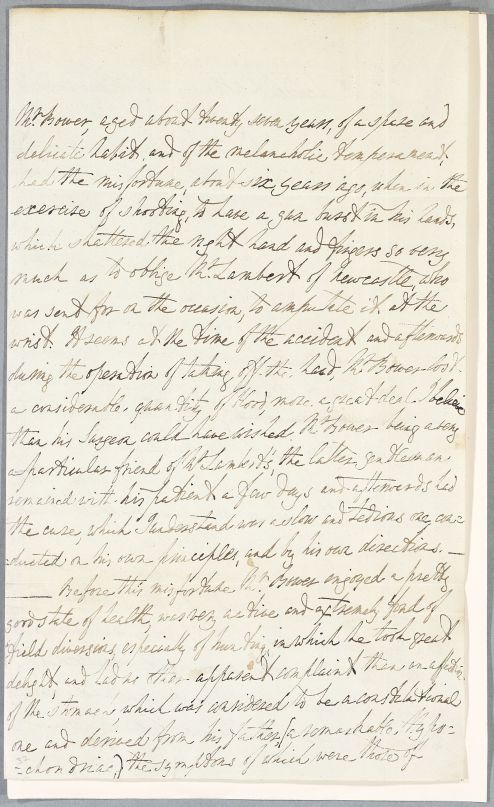 Mr. Bower, aged about twenty seven years, of a spare and
delicate habit, and of the melancholic temperament,
had the misfortune, about six years ago, when in the
exercise of shooting, to have a gun burst in his hands,
which shattered the right hand and fingers so very
much as to oblige Mr. Lambert of Newcastle, who
was sent for on the occasion, to amputate it at the
wrist. It seems at the time of the accident and afterwards
during the operation of taking off the hand, Mr. Bower lost
a considerable quantity of blood, more a great deal I believe
than his Surgeon could have wished. Mr. Bower being a very
particular friend of Mr. Lambert's, the latter gentleman
remained with his patient a few days and afterwards had
the cure, which I understand was a slow and tedious one, con-
ducted on his own principles, and by his own directions. —
— Before this misfortune Mr. Bower enjoyed a pretty
good state of health, was very active and extremely fond of
field diversions, especially of hunting, in which he took great
delight, and had no other apparent complaint than an affection
of the stomach which was considered to be a constitutional
one and derived from his father (a remarkable Hypo-
-chondriac,) the symptoms of which were those of